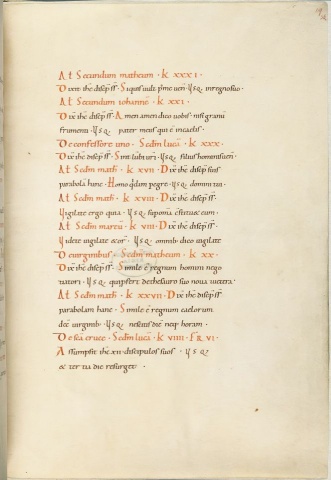 At Secundum matheum · K xxxi ·
Dixit ihs discip ss · Siquis uult p me ueni · Usq. in regno suo ·
At Secundum iohanne · K xxi ·
Dix ihs discip ss · Amen amen dico uobis · nisi granu
frumenti · Usq. pater meus qui e in caelis ·
De confessore uno · Scdm luca · K xxx ·
Dix ihs discip ss · Sint lubi uri · Usq. filius hominis uen ·
At Scdm math · K xvii · Dix ihs discip suis
parabola hanc · Homo qdam pegre · Usq. domini tui ·
At Scdm math · K xviii · Dix ihs discip ss ·
Uigilate ergo quia · Usq. sup omia
At Scdm marcu · K viii · Dix ihs discip ss ·
Uidete uigilate & or · Usq. omnib; dico uigilate
De uirginibus · Scdm matheum · K xx ·
Dix ihs discip ss · Simile e regnum homini nego
tiatori · Usq. qui pfert de thesauro suo noua & uetera ·
At Scdm math · K xxvii · Dix ihs discip ss
parabolam hanc · Simile e regnum caelorum
dece uirginib; · Usq. nescitis die neq; horam ·
De sca cruce · Scdm luca · K viiii · FR VI ·
Assumpsit ihs xii discipulos suos · Usq.
& tertia die resurget ·